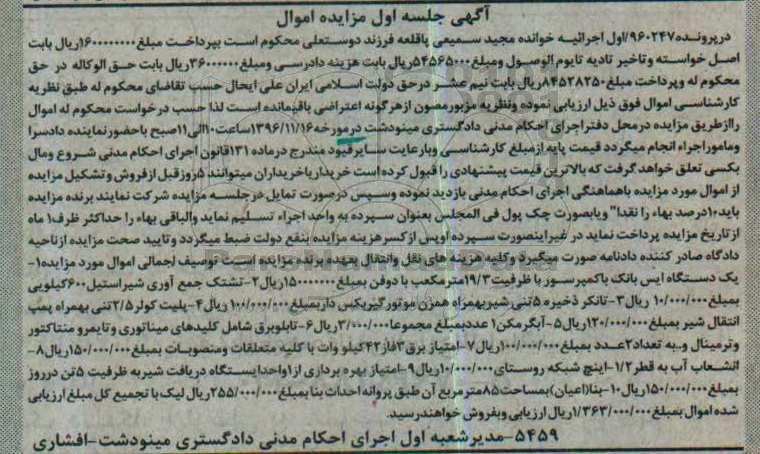 آگهی جلسه اول مزایده اموال
درپرونده۹۶۰۲۴۷/اول اجرائیه خوانده مجید سمیعی پاقلعه فرزند دوستعلی محکوم است بپرداخت مبلغ۱۶۰۰۰۰۰۰۰ریال بابت
اصل خواسته وتاخیر تادیه تایوم الوصول ومبلغ۵۴۵۶۵۰۰۰ریال بابت هزینه دادرسی ومبلغ۳۶۰۰۰۰۰۰ریال بابت حق الوکاله در حق
محکوم له وپرداخت مبلغ۸۴۵۲۸۲۵۰ریال بابت نیم عشر درحق دولت اسلامی ایران علی ایحال حسب تقاضای محکوم له طبق نظریه
کارشناسی اموال فوق ذیل ارزیابی نموده ونظریه مزبورمصون ازهرگونه اعتراضی باقیمانده است لذا حسب درخواست محکوم له اموال
راازطریق مزایده درمحل دفتراجرای احکام مدنی دادگستری مینودشت درمورخه۱۳۹۶/۱۱/۱۶ساعت۱۰الی۱۱صبح باحضورنماینده دادسرا
وماموراجراء انجام میگردد قیمت پایه ازمبلغ کارشناسی وبارعایت سایرقیود مندرج درماده ۱۳۱قانون اجرای احکام مدنی شروع ومال
بکسی تعلق خواهد گرفت که بالاترین قیمت پیشنهادی را قبول کرده است خریداریاخریداران میتوانند ۵روزقبل ازفروش وتشکیل مزایده
از اموال مورد مزایده باهماهنگی اجرای احکام مدنی بازدید نموده وسپس درصورت تمایل درجلسه مزایده شرکت نمایند برنده مزایده
باید۱۰درصد بهاء را نقدا" ویابصورت چک پول فی المجلس بعنوان سپرده به واحد اجراء تسلیم نماید والباقی بهاء را حداکثر ظرف۱ ماه
ازتاریخ مزایده پرداخت نماید در غیراینصورت سپرده اوپس ازکسرهزینه مزایده بنفع دولت ضبط میگردد وتایید صحت مزایده ازناحیه
دادگاه صادر کننده دادنامه صورت میگیرد وکلیه هزینه های نقل وانتقال بعهده برنده مزایده است توصیف اجمالی اموال مورد مزایده۱-
یک دستگاه ایس بانک باکمپرسور با ظرفیت۱۹/۳مترمکعب با دوفن بمبلغ۱۵۰۰۰۰۰۰۰ریال۲-تشتک جمع آوری شیراستیل۶۰۰کیلویی
بمبلغ۱۰/۰۰۰/۰۰۰ ریال۳-تانکر ذخیره ۵تنی شیربهمراه همزن موتورگیربکس داربمبلغ۱۰۰/۰۰۰/۰۰۰ ریال۴-پلیت کولر۲/۵تنی بهمراه پمپ
انتقال شیر بمبلغ۱۲۰/۰۰۰/۰۰۰ریال۵-آبگرمکن۱ عددبمبلغ مجموعا۳/۰۰۰/۰۰۰ریال۶-تابلوبرق شامل کلیدهای مینیاتوری وتایمرو منتاکتور
وترمینال و..به تعداد۲عدد بمبلغ۱۰۰/۰۰۰/۰۰۰ریال۷-امتیاز برق۳فاز۴۲کیلو وات با کلیه متعلقات ومنصوبات بمبلغ۱۵۰/۰۰۰/۰۰۰ریال۸-
انشعاب آب به قطر۱/۲-اینچ شبکه روستای۱۰/۰۰۰/۰۰۰ریال۹-امتیاز بهره برداری از۱واحدایستگاه دریافت شیربه ظرفیت ۵تن درروز
بمبلغ۱۵۰/۰۰۰/۰۰۰ریال۱۰-بنا(اعیان)بمساحت۸۵مترمربع آن طبق پروانه احداث بنابمبلغ۲۵۵/۰۰۰/۰۰۰ریال لیک با تجمیع کل مبلغ ارزیابی
شده اموال بمبلغ۱/۳۶۳/۰۰۰/۰۰۰ریال ارزیابی وبفروش خواهندرسید.
۵۴۵۹-مدیرشعبه اول اجرای احکام مدنی دادگستری مینودشت-افشاری